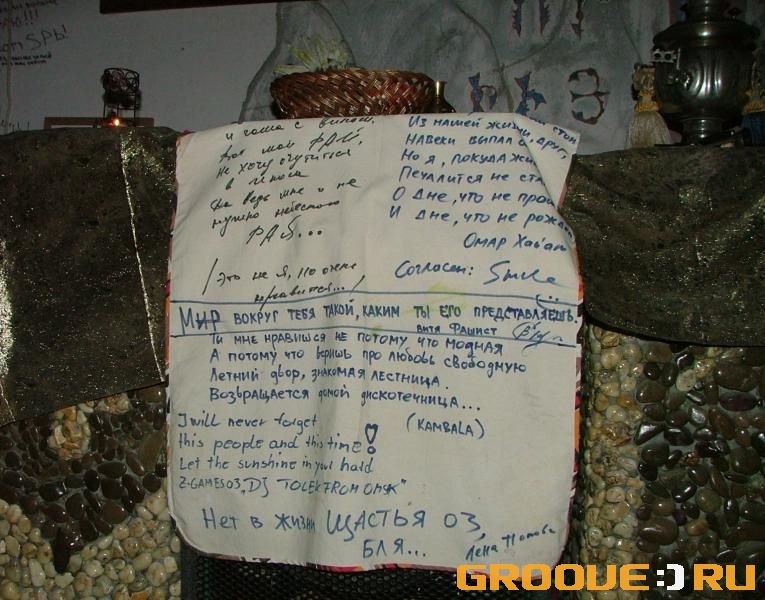 SPЬ!
и чаша с вином.
Вот мой РАЙ
Не хочу очутиться
в
Да ведь мне и не
нужно небесного
РАЯ...
/Это не я, но очень
нравится.../
Из нашей жизни, друг,
Навеки выпал
Но я, покуда жи
Печалится не ста
О дне, что не про
И дне, что не рожд
Омар Хайам
Согласен: Smile
МИР ВОКРУГ ТЕБЯ ТАКОЙ, КАКИМ ТЫ ЕГО ПРЕДСТАВЛЯЕШЬ.
ВИТЯ ФАШИСТ
Ты мне нравишся не потому, что модная
А потому что веришь про любовь свободную
Летний двор, знакомая лестница.
Возвращается домой дискотечница...
(KAMBALA)
I will never forget
this people and this time!
Let the sunshine in your hald
Z-GAMES03 „DJ TOLEK FROM OMSK"
Нет в жизни ЩАСТЬЯ ОЗ
БЛЯ...
Лена Попова
GROOVE:)RU